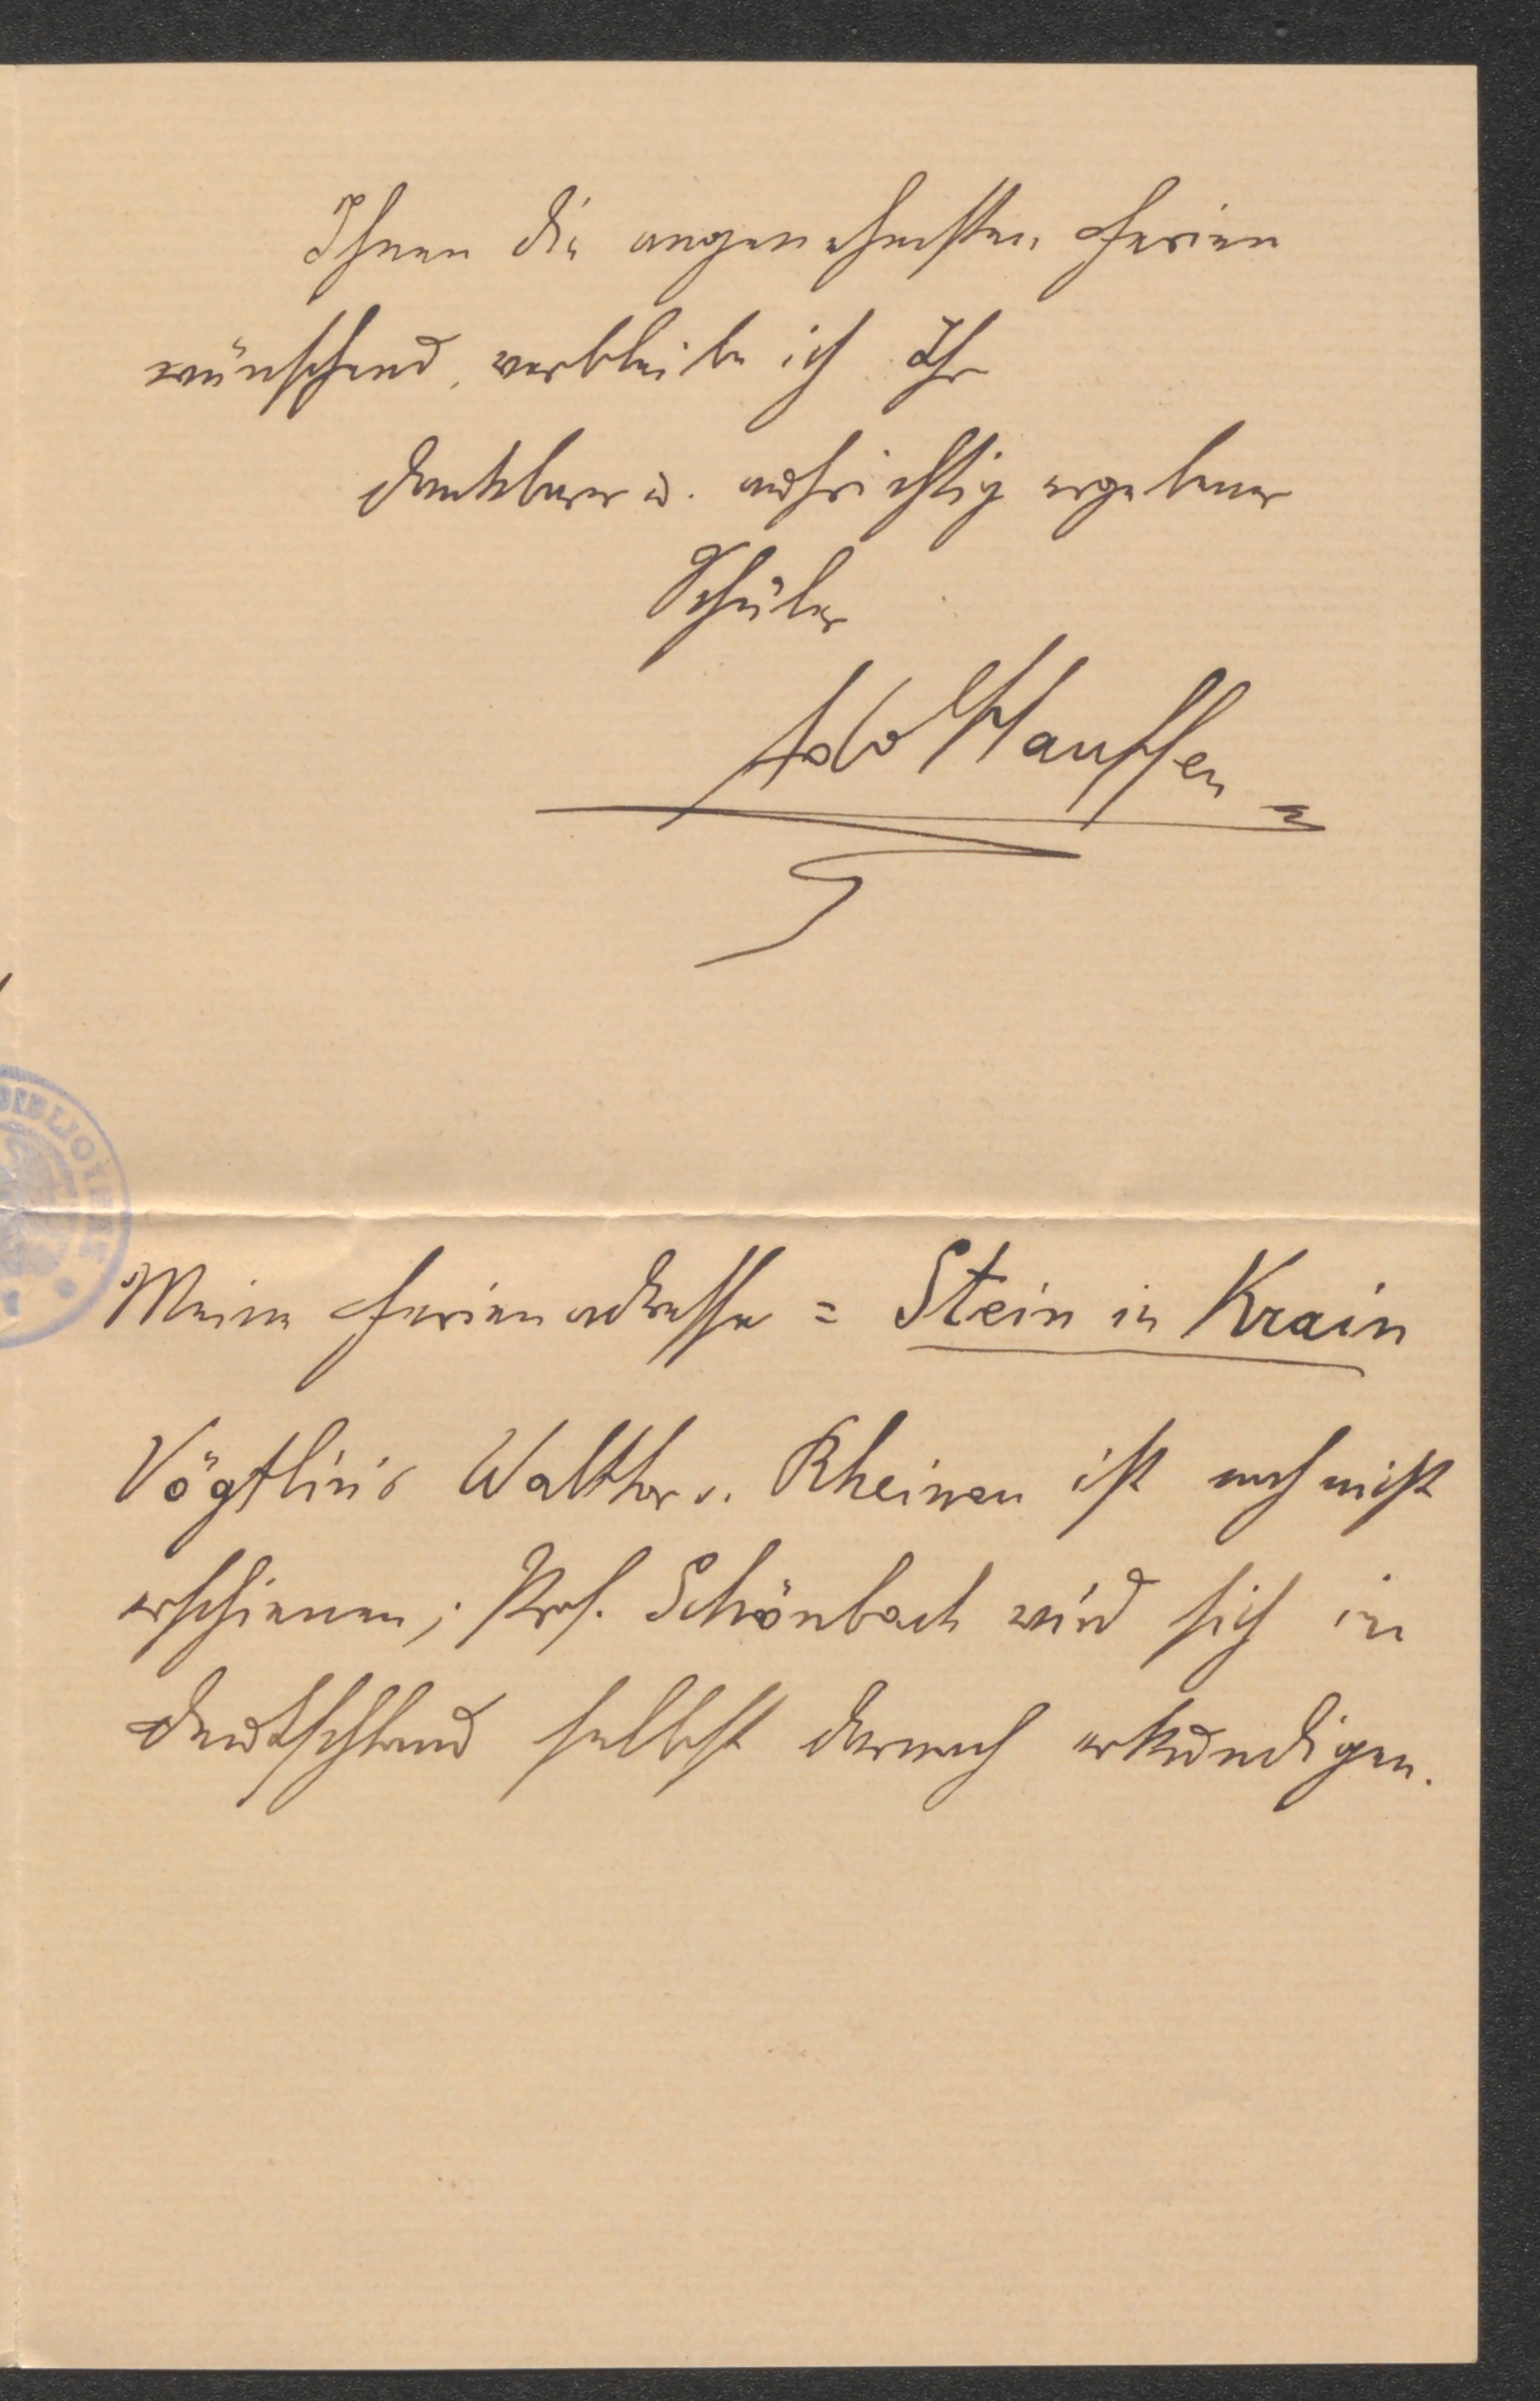 Ihnen die angenehmsten Ferien
wünschend, verbleibe ich Ihr
dankbarer u. aufrichtig ergebener
Schüler
Ad Hauffen
BIBLIOTHEK
Meine Ferienadresse = Stein in Krain
Vögtlin's Walther v. Rheinau ist noch nicht
erschienen; Prof. Schönbach wird sich in
Deutschland selbst darnach erkundigen.